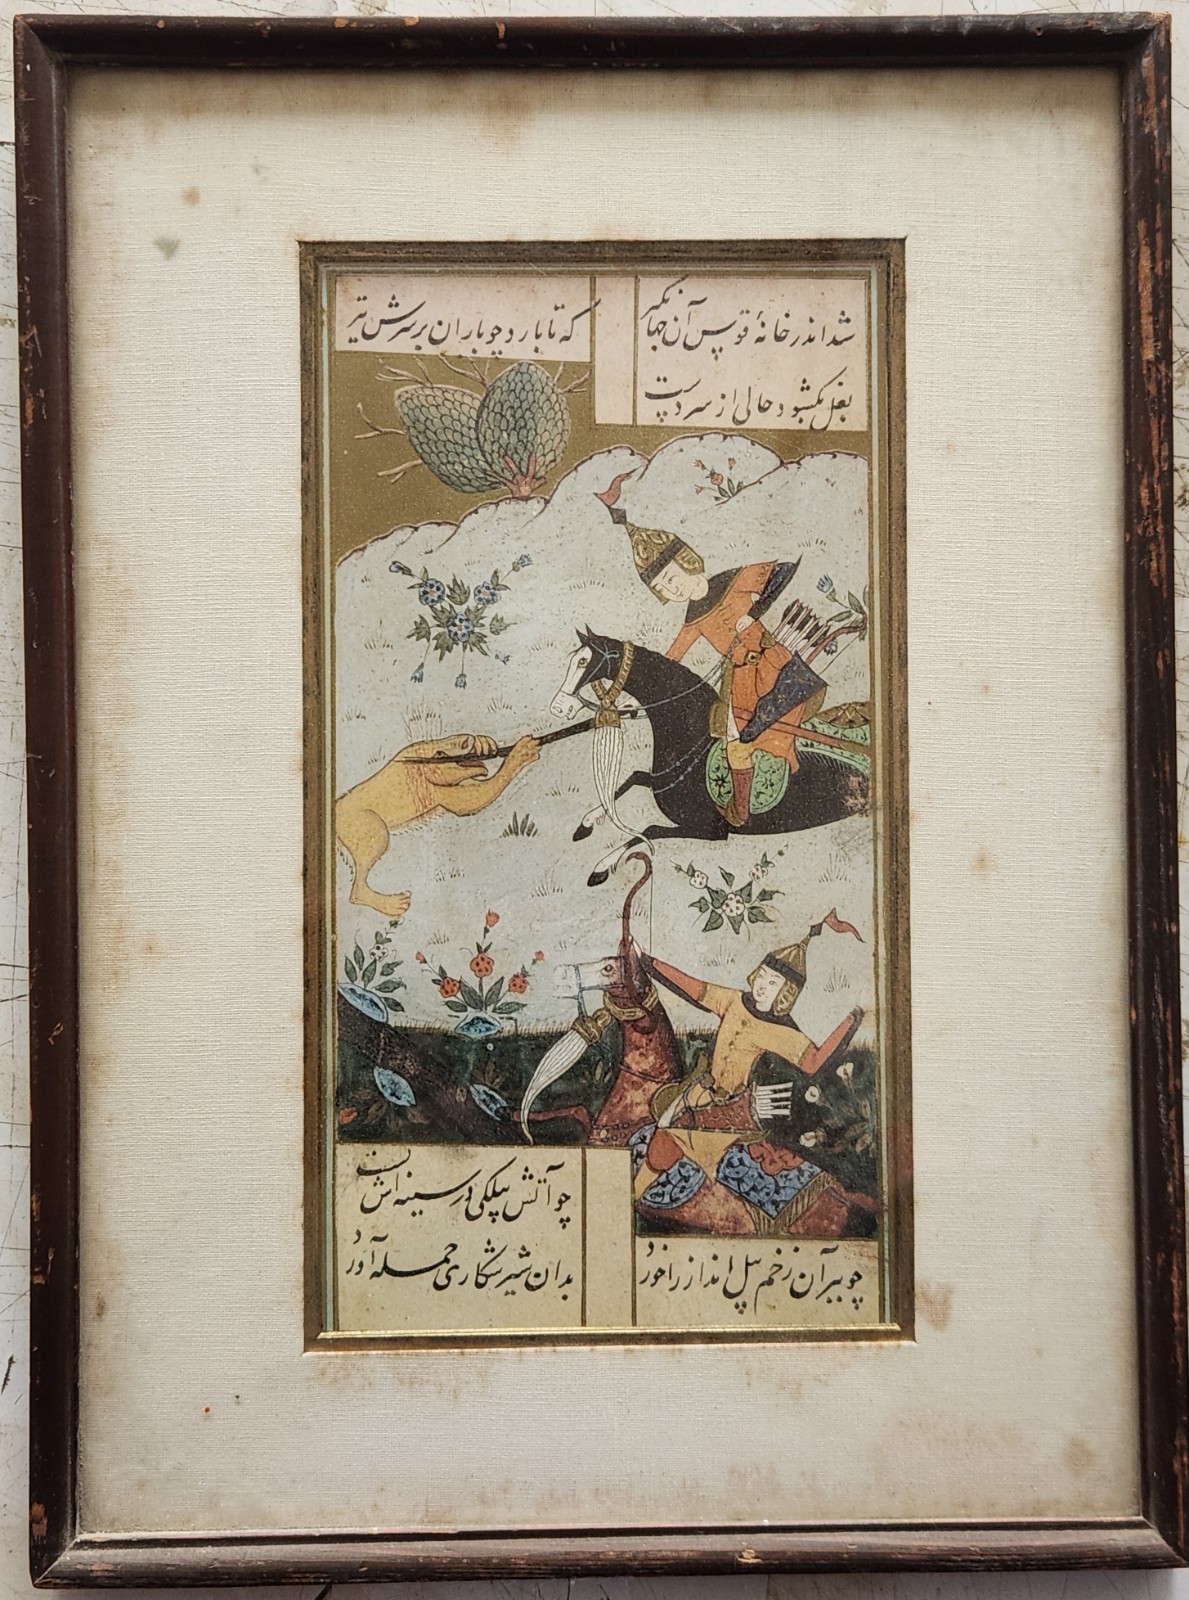 شد اندر خانهٔ قوس آن جهانگیر
که تا بارد چو باران بر سرش تیر
بغل بگشود حالی از سر دست
چو آتش پیلکی در سینه‌اش بست
چو ببر آن زخم پیل انداز را خورد
بدان شیر شکاری حمله آورد